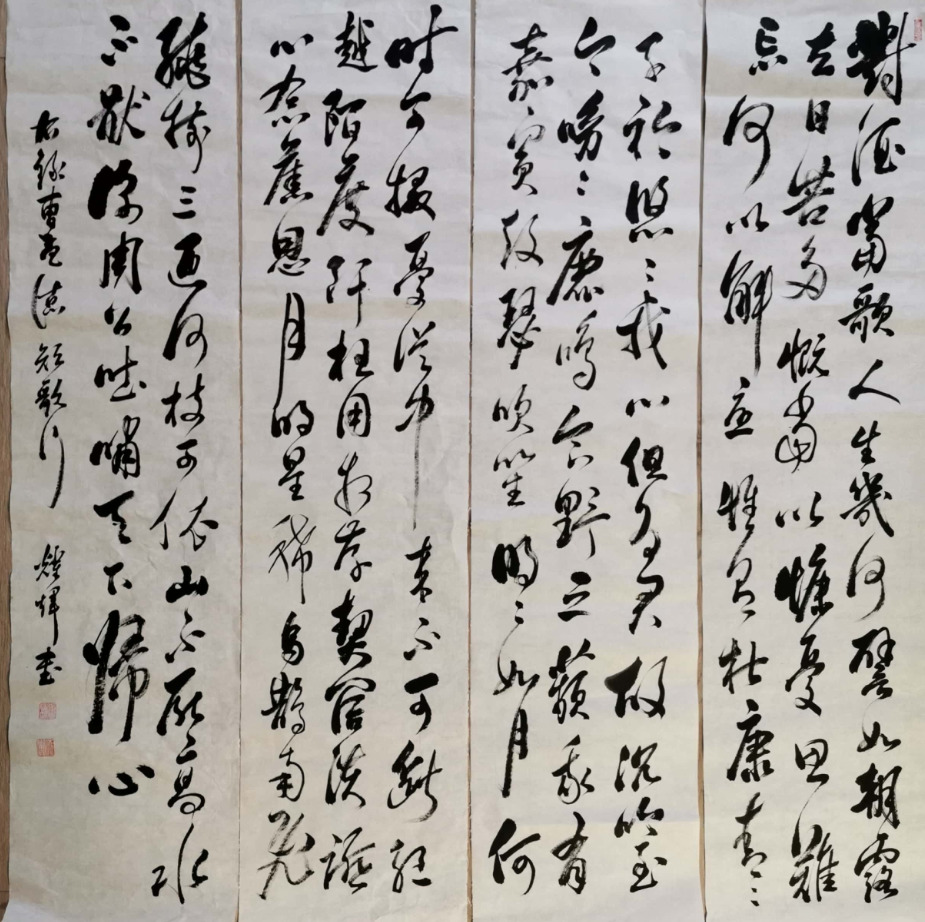 對酒當歌人生幾何譬如朝露
去日苦多慨當以慷憂思難
忘何以解憂惟有杜康青々
子衿悠々我心但為君故沉吟至
今呦々鹿鳴食野之蘋我有
嘉賓鼓瑟吹笙明々如月何
时可掇憂從中來不可斷絕
越陌度阡枉用相存契闊談讌
心念舊恩月明星稀烏鵲南飛
繞樹三匝何枝可依山不厭高水
不厭深周公吐哺天下歸心
右錄曹孟德短歌行 輝書